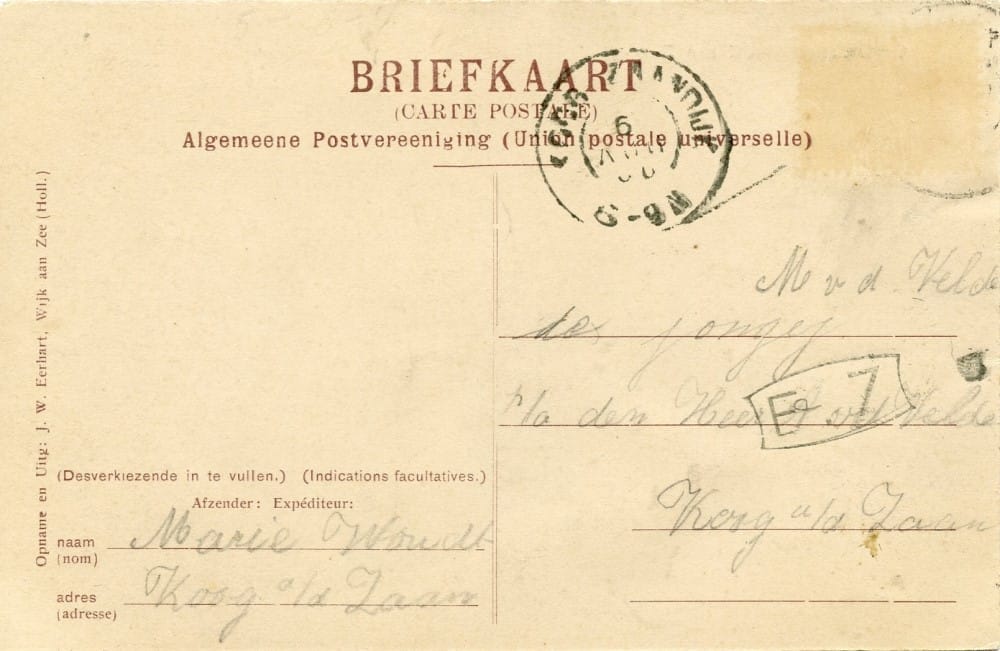 BRIEFKAART
(CARTE POSTALE)
Algemeene Postvereeniging (Union postale universelle)
KOOG-ZAANDIJK
6
8-9N
M v d Velde
p/a den Heer A vd Velde
E 7
Koog a/d Zaan
Opname en Uitg: J. W. Eerhart, Wijk aan Zee (Holl.)
(Desverkiezende in te vullen.) (Indications facultatives.)
Afzender: Expéditeur:
naam Marie Woudt
(nom)
adres Koog a/d Zaan
(adresse)